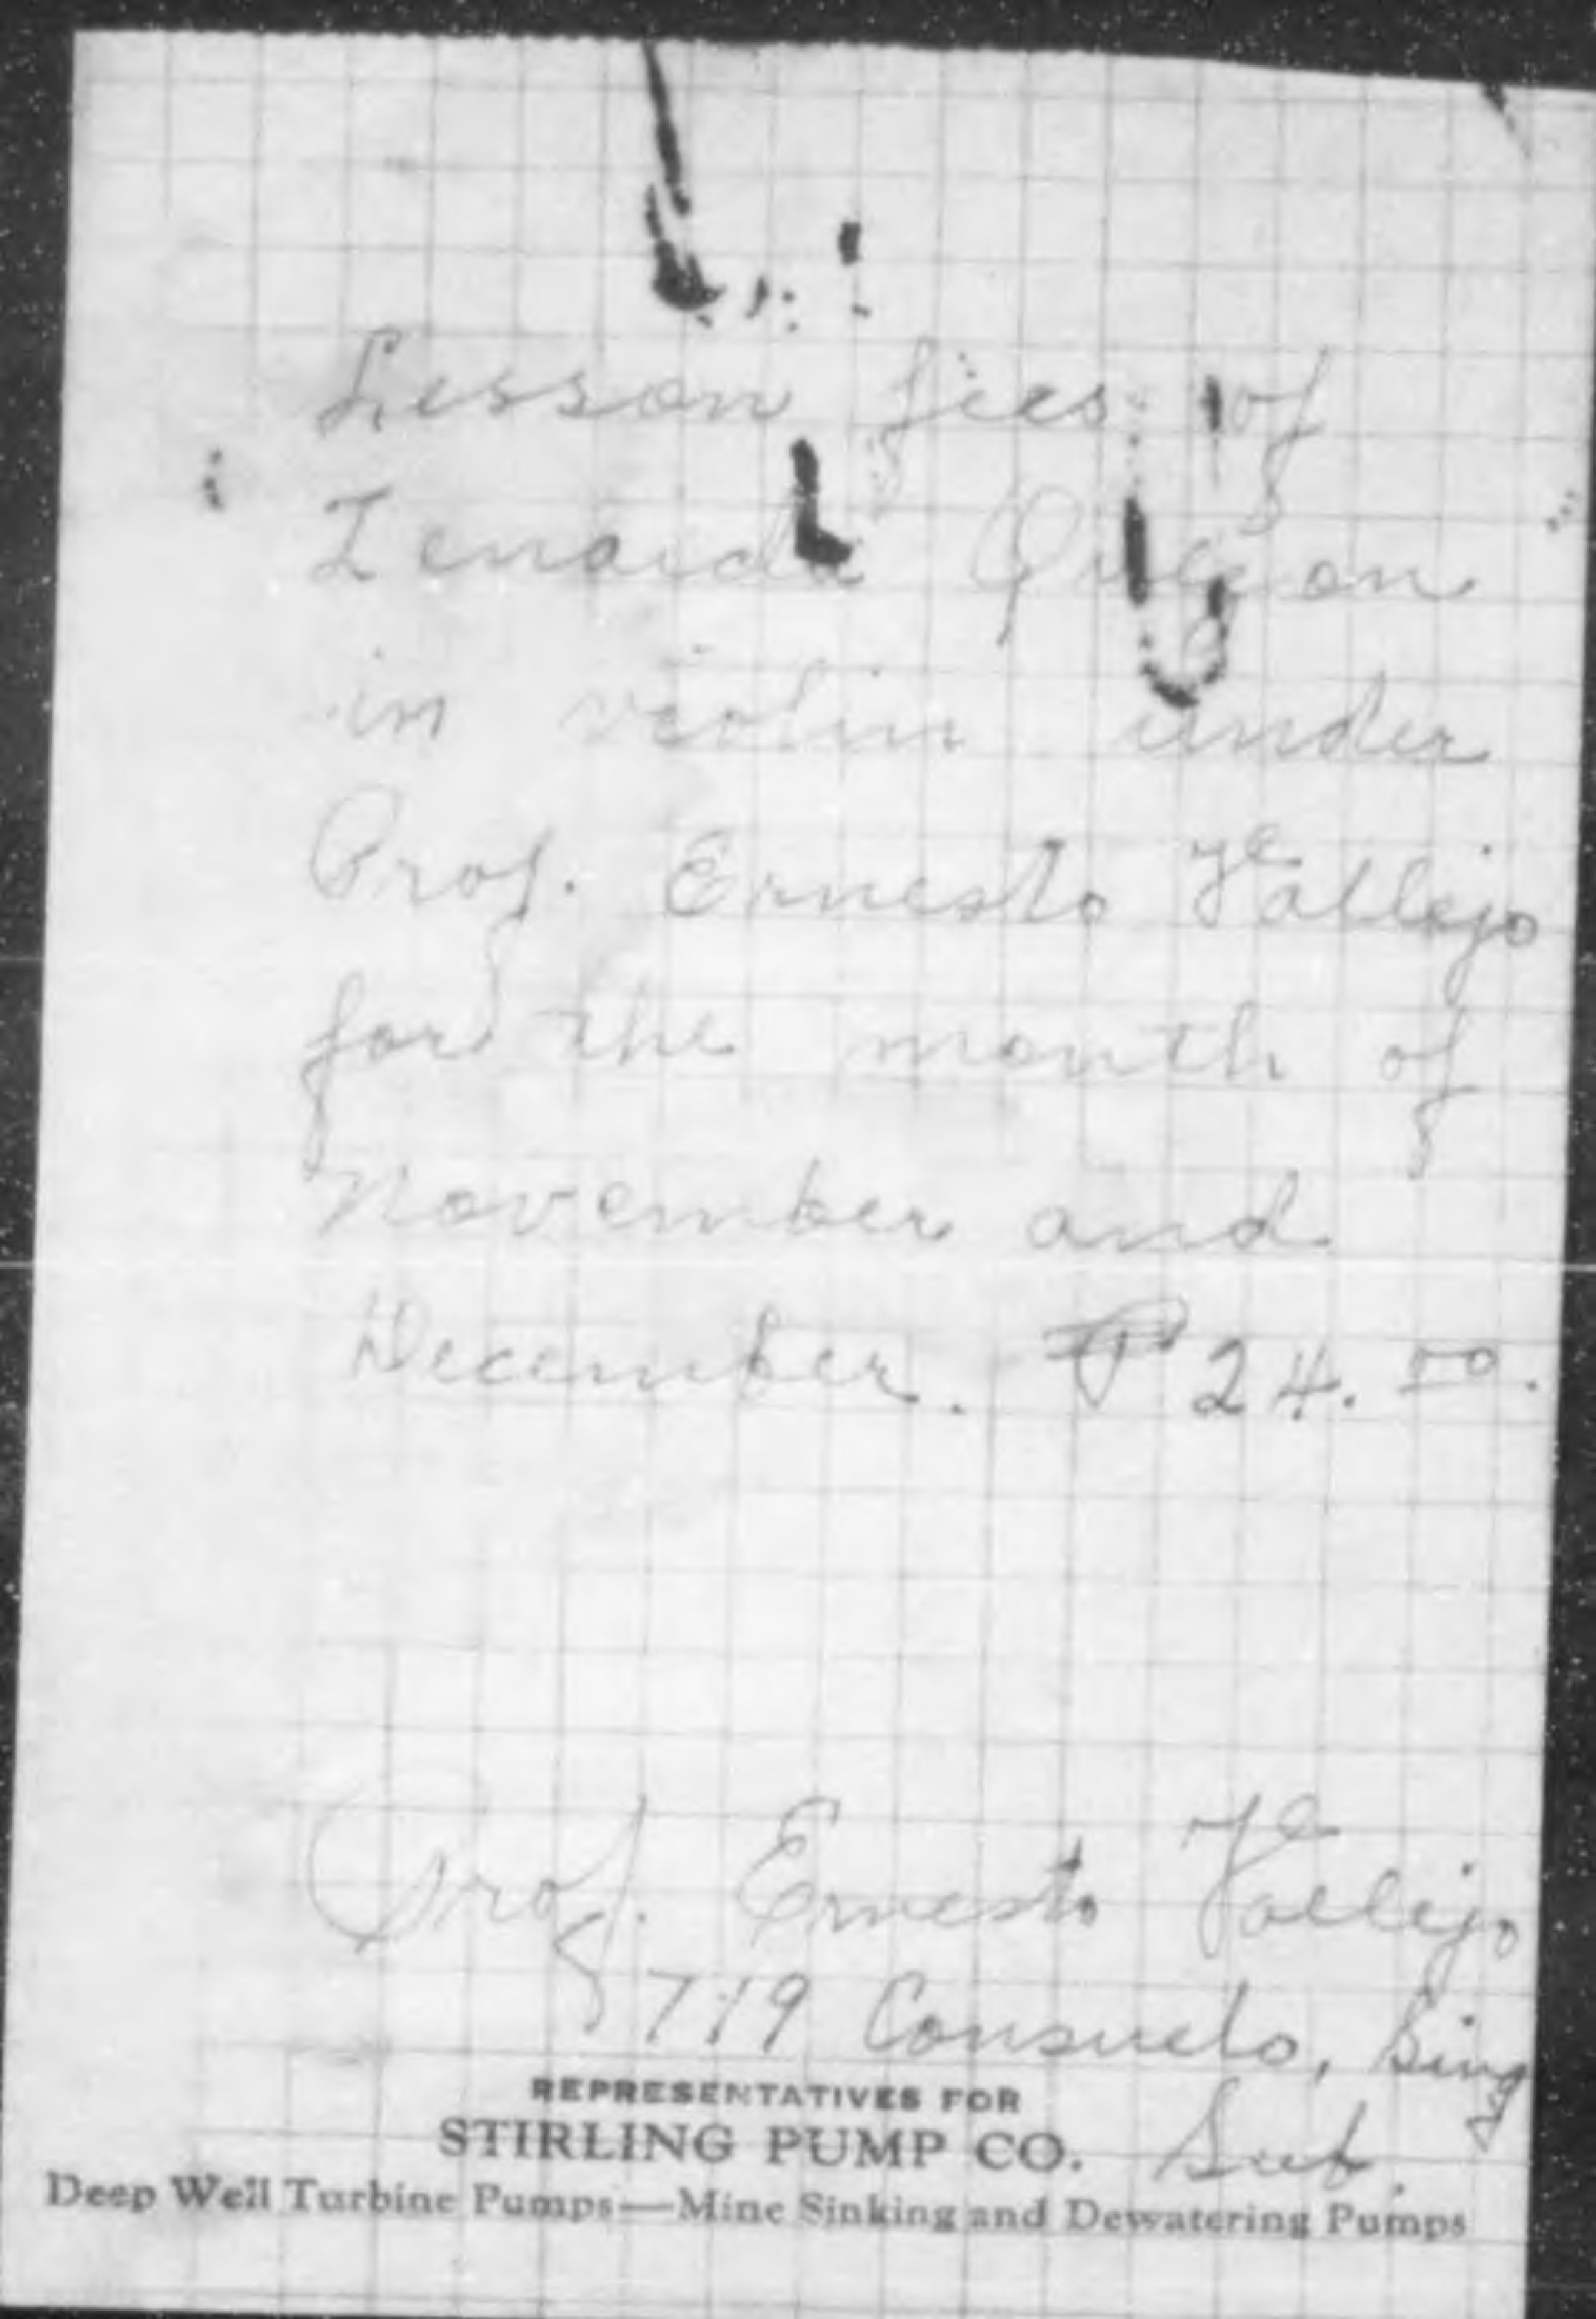 Lesson fees of
Zenaida Quezon
in violin under
Prof. Ernesto Vallejo
for the month of
November and
December. ₱ 24.00.
Prof. Ernesto Vallejo
719 Consuelo, Sing
Sub.
REPRESENTATIVES FOR
STIRLING PUMP CO.
Deep Well Turbine Pumps—Mine Sinking and Dewatering Pumps